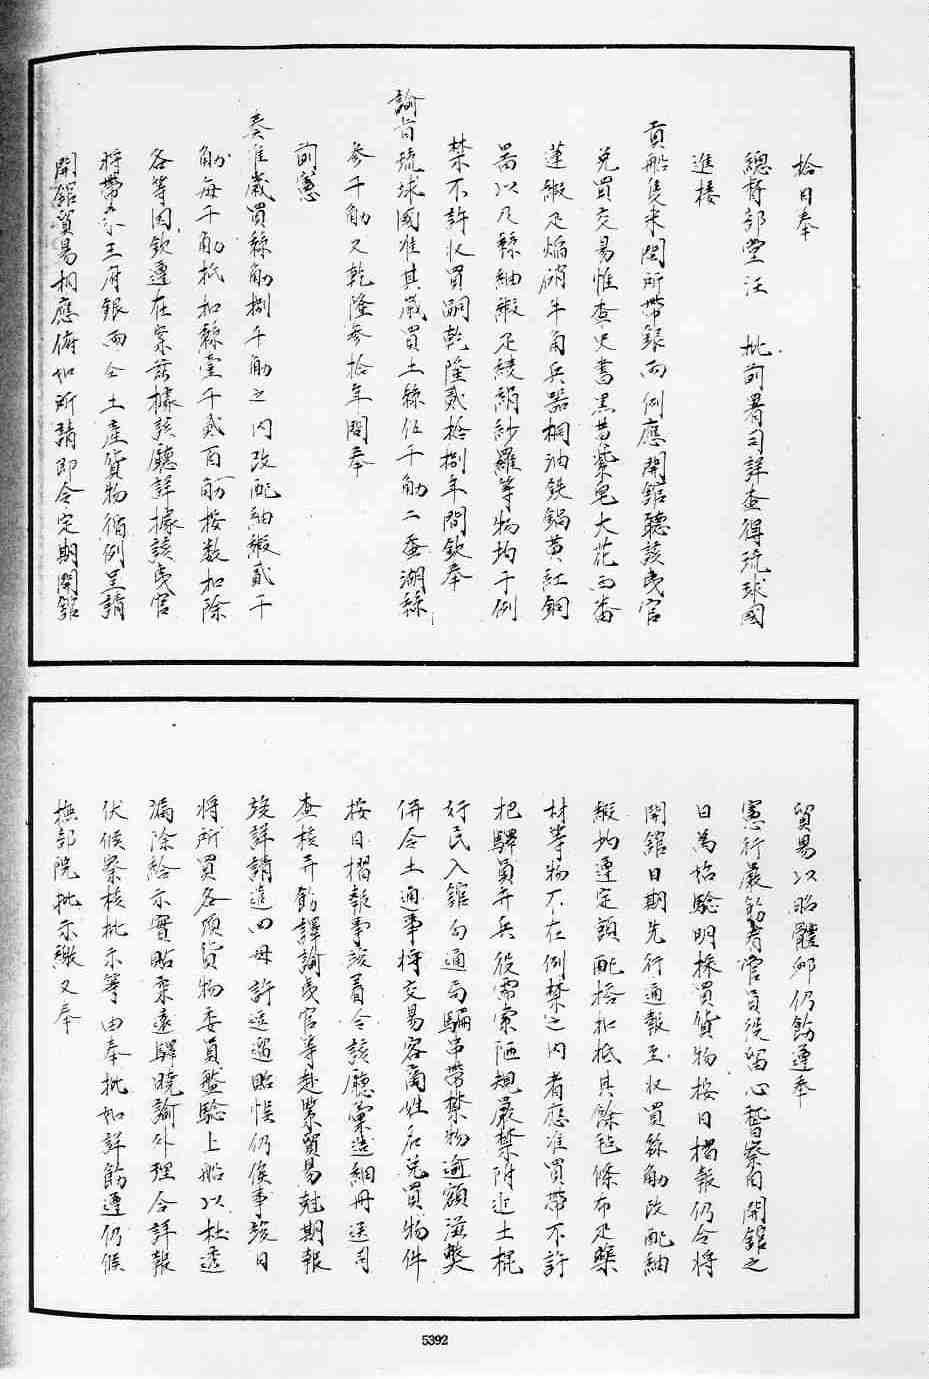 拾日奉
總督部堂汪　批前署司詳查得琉球國
進楼
貢船隻来閩所帶銀兩例應開舘聽該夷官
兌買交易惟查史書黒黃紫皂大花西番
蓮緞疋焰硝牛角兵器桐油鉄鍋黃紅銅
噐以及絲紬緞疋綾絹紗羅等物均干例
禁不許收買嗣乾隆貳拾捌年間欽奉
諭旨琉球國准其歲買土絲伍千觔二蚕湖絲
參千觔又乾隆參拾年間奉
前憲
奏准歲買絲觔捌千觔之內改配紬緞貳千
觔每千觔抵扣絲壹千貳百觔按数扣除
各等因欽遵在案茲據該廳詳據該夷官
将帶来王府銀兩仝土產貨物循例呈請
開舘貿易相應俯如所請即令定期開舘
貿易以昭體卹仍飭遵奉
憲行嚴飭看官員役留心稽察自開舘之
日為始驗明採買貨物按日摺報仍令将
開舘日期先行通報至收買絲觔改配紬
緞均遵定額配搭扣抵其餘毡條布疋藥
材等物不在例禁之內者應准買帶不許
把驛員弁兵役需索陋規嚴禁附近土棍
奸民入舘勾通局騙串帶禁物逾額滋獘
併令土通事将交易客商姓名兌買物件
按日摺報事竣着令該廳彙造細冊送司
查核并飭譯諭夷官等赴緊貿易尅期報
竣詳請遣回毋許逗遛貽悮仍俟事竣日
将所買各項貨物委員盤驗上船以杜透
漏除給示實貼柔遠驛曉諭外理合詳報
伏候察核批示等由奉批如詳飭遵仍候
撫部院批示繳又奉
5392